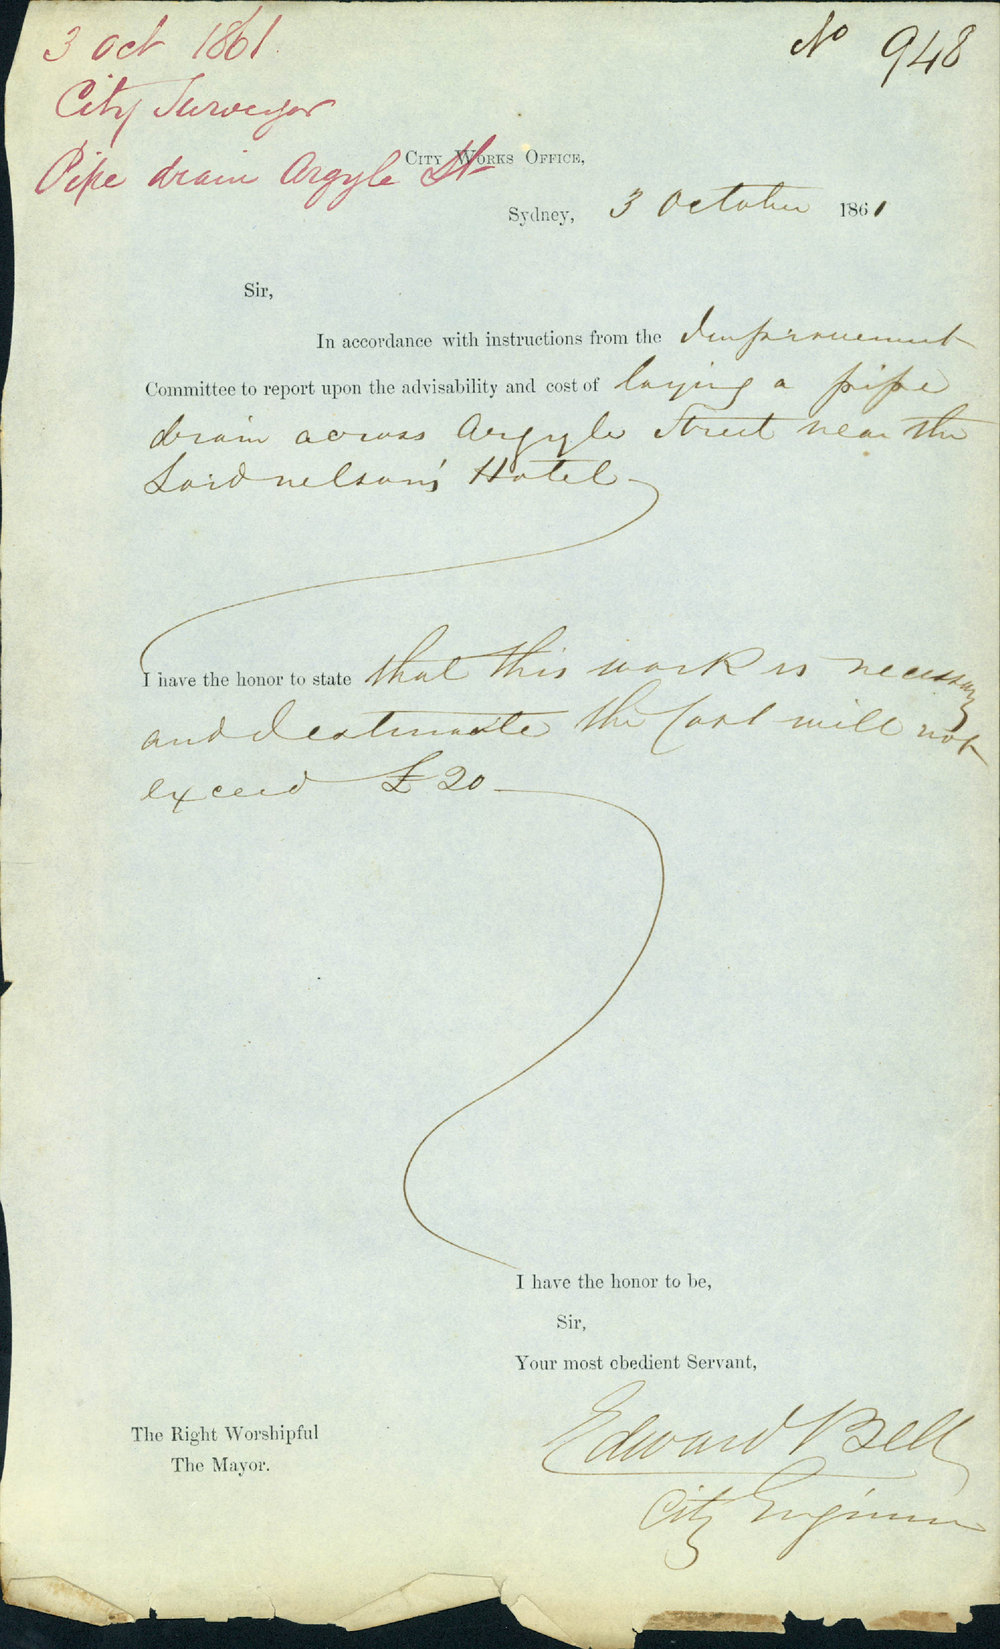 3 Oct 1861
City Surveyor
Pipe drain Argyle St
No 948
City Works Office,
Sydney, 3 October 1861
Sir,
In accordance with instructions from the Improvement
Committee to report upon the advisability and cost of laying a pipe
drain across Argyle Street near the
Lord nelson's Hotel
I have the honor to state that this work is necessary
and I estimate the Cost will not
exceed £20
I have the honor to be,
Sir,
Your most obedient Servant,
Edward Bell
City Engineer
The Right Worshipful
The Mayor.